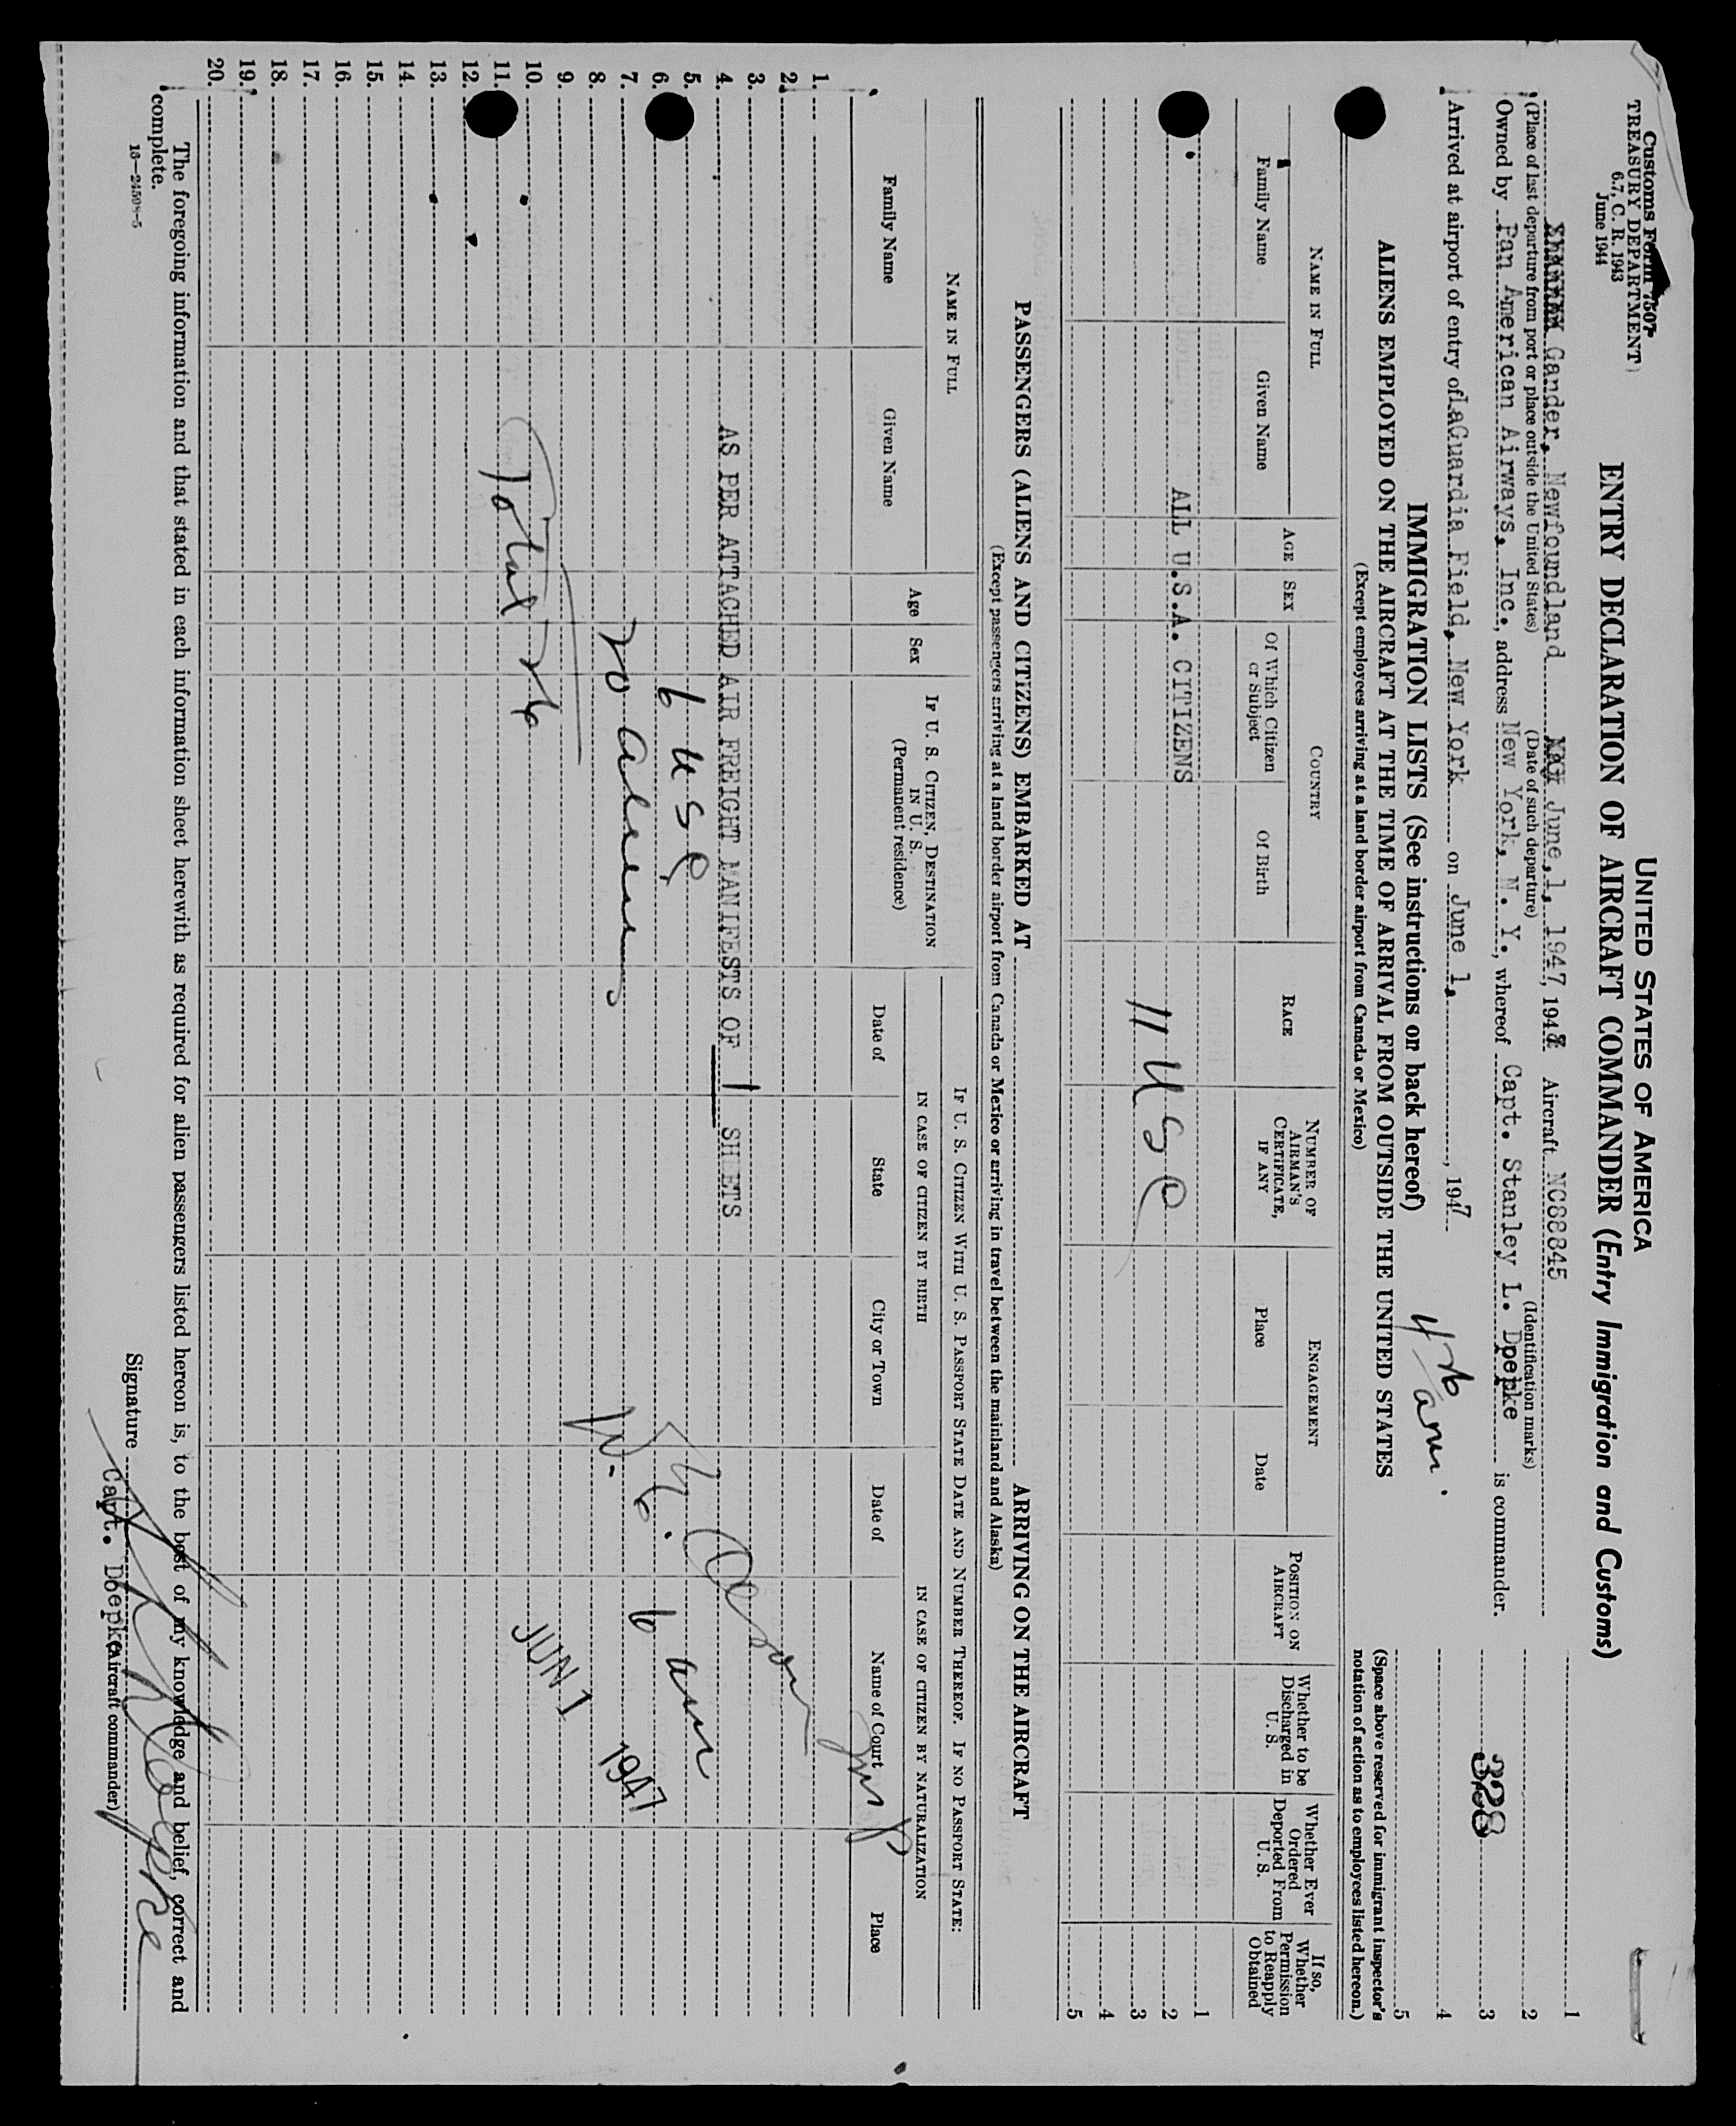 Customs Form 7507
TREASURY DEPARTMENT
6.7, C. R. 1943
June 1944
UNITED STATES OF AMERICA
ENTRY DECLARATION OF AIRCRAFT COMMANDER (Entry Immigration and Customs)
Gander, Newfoundland June 1, 1947, 194 Aircraft NC88845
(Place of last departure from port or place outside the United States) (Date of such departure) (Identification marks)
Owned by Pan American Airways, Inc., address New York, N. Y., whereof Capt. Stanley L. Doepke is commander.
Arrived at airport of entry of LaGuardia Field, New York on June 1, , 1947
1
2
3
4
5
328
(Space above reserved for immigrant inspector's
notation of action as to employees listed hereon.)
IMMIGRATION LISTS (See instructions on back hereof)
ALIENS EMPLOYED ON THE AIRCRAFT AT THE TIME OF ARRIVAL FROM OUTSIDE THE UNITED STATES
(Except employees arriving at a land border airport from Canada or Mexico)
NAME IN FULL
Family Name
Given Name
AGE
SEX
COUNTRY
Of Which Citizen or Subject
Of Birth
RACE
NUMBER OF AIRMAN'S CERTIFICATE, IF ANY
ENGAGEMENT
Place
Date
POSITION ON AIRCRAFT
Whether to be Discharged in U. S.
Whether Ever Ordered Deported From U. S.
If so, Whether Permission to Reapply Obtained
1
ALL U.S.A. CITIZENS 2
11 USC 3
4
5
PASSENGERS (ALIENS AND CITIZENS) EMBARKED AT ARRIVING ON THE AIRCRAFT
(Except passengers arriving at a land border airport from Canada or Mexico or arriving in travel between the mainland and Alaska)
NAME IN FULL
Family Name
Given Name
Age
Sex
IF U. S. CITIZEN, DESTINATION IN U. S.
(Permanent residence)
IF U. S. CITIZEN WITH U. S. PASSPORT STATE DATE AND NUMBER THEREOF. IF NO PASSPORT STATE:
IN CASE OF CITIZEN BY BIRTH
Date of
State
City or Town
IN CASE OF CITIZEN BY NATURALIZATION
Date of
Name of Court
Place
1.
2.
3.
4. AS PER ATTACHED AIR FREIGHT MANIFESTS OF 1 SHEETS
5.
6. 6 USC
7. 20 aliens
8.
9.
10. 26
11. Total
12.
13.
14.
15.
16.
17.
18.
19.
20.
JUN 1 1947
The foregoing information and that stated in each information sheet herewith as required for alien passengers listed hereon is, to the best of my knowledge and belief, correct and
complete.
16—24508-5
Signature
Capt. Doepke (Aircraft commander)